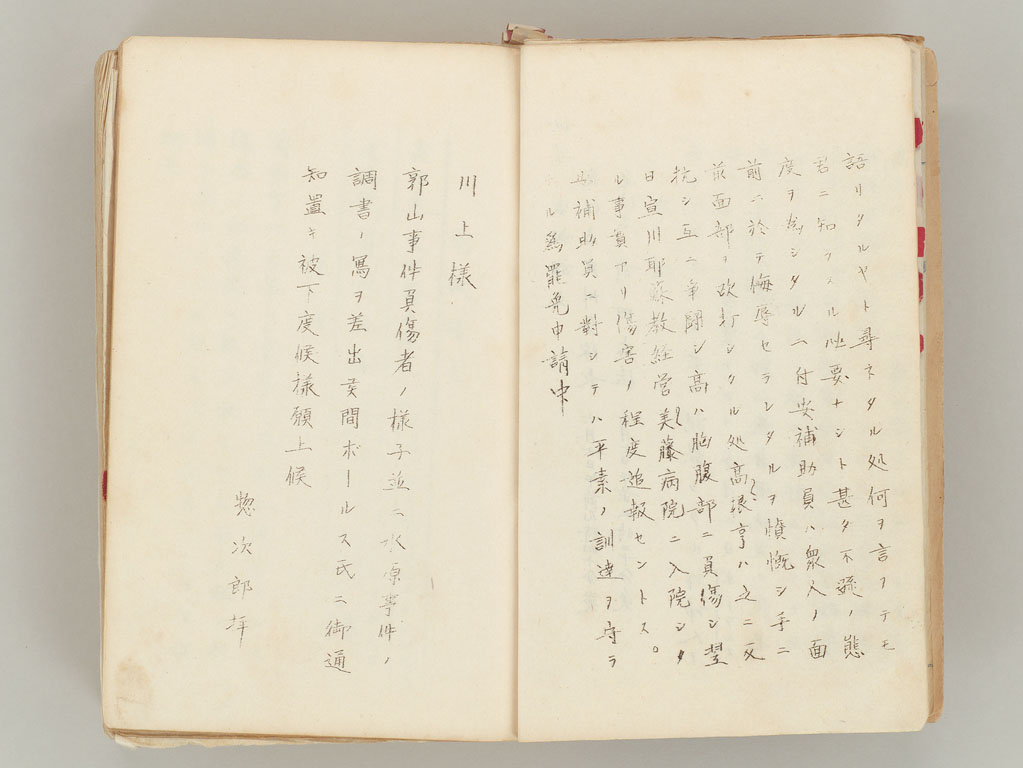 語リタルヤト尋ネタル処何ヲ言フテモ
君ニ知ラスル必要ナシト甚タ不遜ノ態
度ヲ為シタルニ付安補助員ハ衆人ノ面
前ニ於テ侮辱セラレタルヲ憤慨シ手ニ
前面部ヲ殴打シタル処高 亨ハ之ニ反
抗シ互ニ争闘シ高ハ胸腹部ニ負傷シ翌
日宣川耶蘇教経営美 病院ニ入院シタ
ル事実アリ傷害ノ程度追報セントス。
補助員ニ對シテハ平素ノ訓達ヲ守ラ
ル為罷免申請中
川上様
郭山事件負傷者ノ様子並ニ水原事件ノ
調書ノ寫ヲ差出候間ボールス氏ニ御通
知置キ被下度候様願上候
惣次郎拝